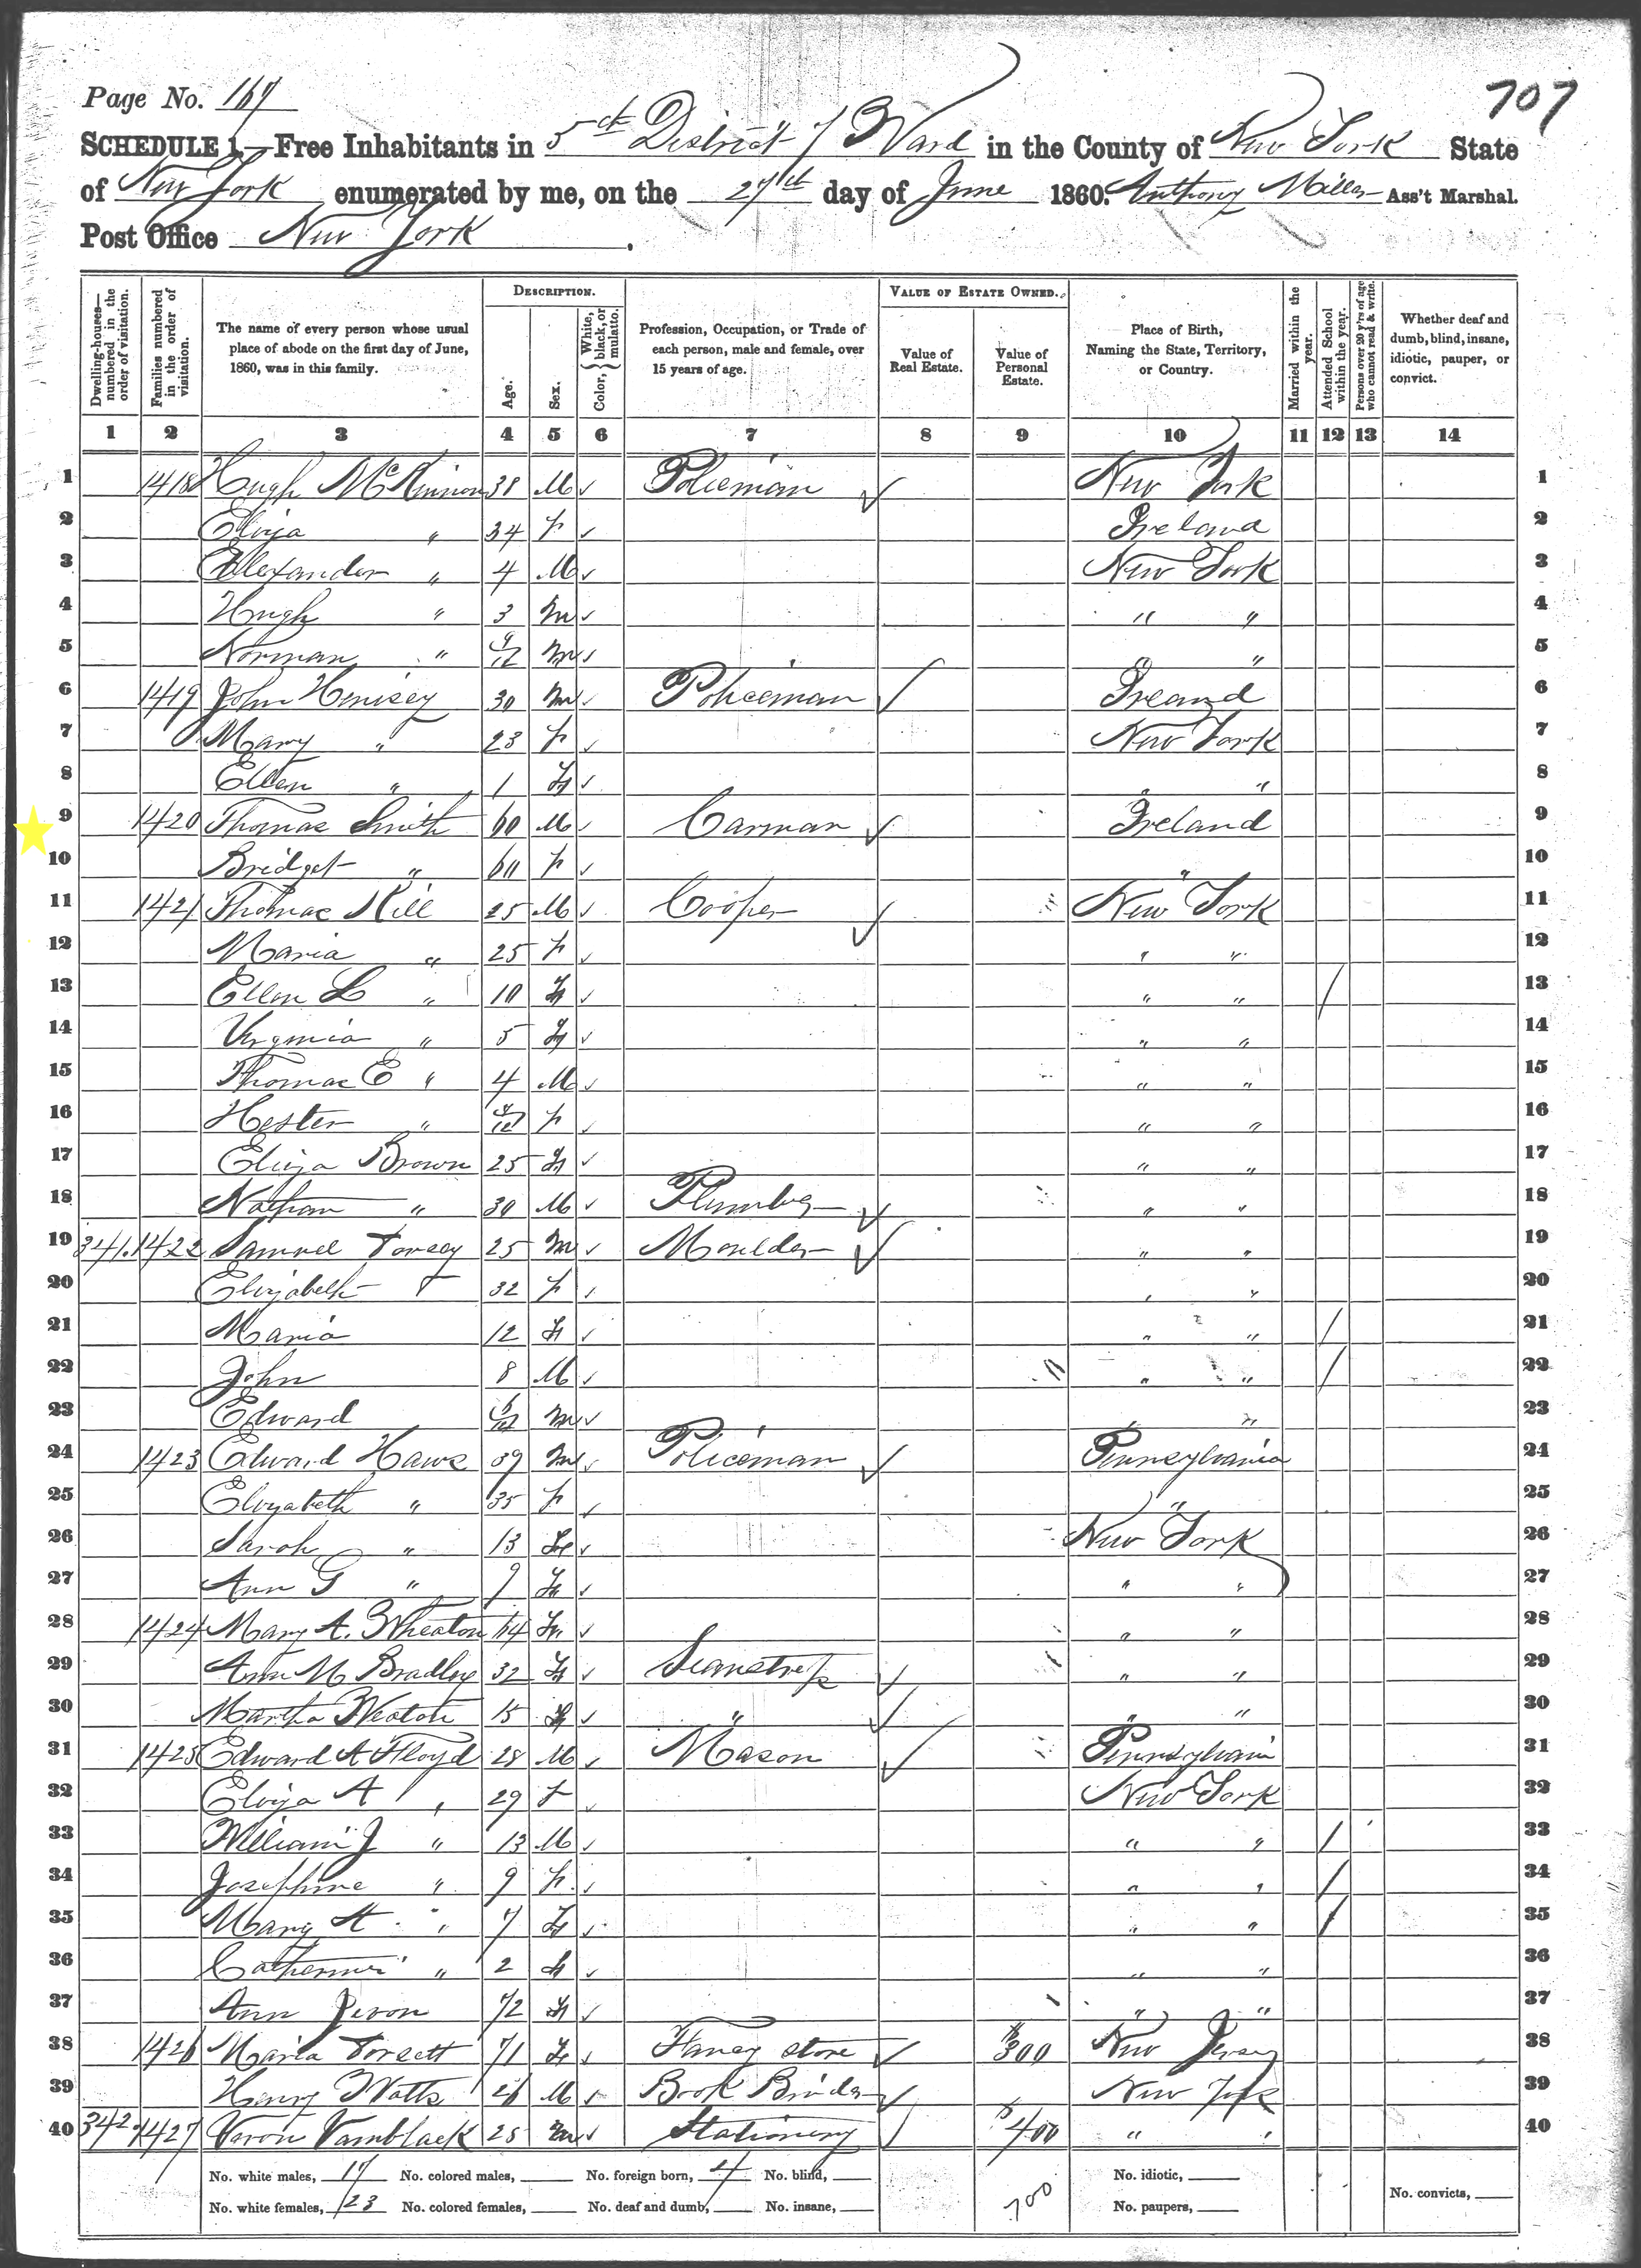 Page No. 167
707
SCHEDULE 1.—Free Inhabitants in 5th District 7 Ward in the County of New York State
of New York enumerated by me, on the 27th day of June 1860. Anthony Miller Ass't Marshal.
Post Office New York.
Dwelling-houses—numbered in the order of visitation.
Families numbered in the order of visitation.
The name of every person whose usual place of abode on the first day of June, 1860, was in this family.
DESCRIPTION.
Age.
Sex.
Color, { White, black, or mulatto.
Profession, Occupation, or Trade of each person, male and female, over 15 years of age.
VALUE OF ESTATE OWNED.
Value of Real Estate.
Value of Personal Estate.
Place of Birth, Naming the State, Territory, or Country.
Married within the year.
Attended School within the year.
Persons over 20 y'rs of age who cannot read & write.
Whether deaf and dumb, blind, insane, idiotic, pauper, or convict.
1 2 3 4 5 6 7 8 9 10 11 12 13 14
1 1418 Hugh McKinnon 38 M ✓ Policeman ✓ New York 1
2 Eliza " 34 f ✓ Ireland 2
3 Alexander " 4 M ✓ New York 3
4 Hugh " 3 M ✓ " " 4
5 Norman " 9/12 M ✓ " " 5
6 1419 John Henisey 30 M ✓ Policeman ✓ Ireand 6
7 Mary " 23 f ✓ New York 7
8 Ellen " 1 f ✓ " " 8
9 1420 Thomas Smith 60 M ✓ Carman ✓ Ireland 9
10 Bridget " 60 f ✓ " 10
11 1421 Thomas Hill 25 M ✓ Cooper ✓ New York 11
12 Maria " 25 f ✓ " " 12
13 Ellen L " 10 f ✓ " " / 13
14 Virginia " 5 f ✓ " " 14
15 Thomas E " 4 M ✓ " " 15
16 Hester " f ✓ " " 16
17 Eliza Brown 25 f ✓ " " 17
18 Nathan " 30 M ✓ Plumber ✓ " " 18
19 341. 1422 Samuel Torsey 25 M ✓ Moulder ✓ " " 19
20 Elizabeth T 32 f ✓ " " 20
21 Maria 12 f ✓ " " / 21
22 John 8 M ✓ " " / 22
23 Edward 6/12 M ✓ " " 23
24 1423 Edward Haws 39 M ✓ Policeman ✓ Pennsylvania 24
25 Elizabeth " 35 f ✓ " 25
26 Sarah " 13 f ✓ New York 26
27 Ann G " 9 f ✓ " " 27
28 1424 Mary A. Wheaton 64 f ✓ " " 28
29 Ann M Bradley 32 f ✓ Seamstress ✓ " " 29
30 Martha Weaton 15 f ✓ " ✓ " " 30
31 1425 Edward A Floyd 28 M ✓ Mason ✓ Pennsylvani 31
32 Eliza A " 29 f ✓ New York 32
33 William J " 13 M ✓ " " / 33
34 Josephine " 9 f ✓ " " / 34
35 Mary A " 7 f ✓ " " / 35
36 Catherine " 2 f ✓ " " 36
37 Ann 72 f ✓ " " 37
38 1426 Maria Torsett 71 f ✓ Fancy store ✓ $300 New Jersey 38
39 Henry Watts 26 M ✓ Book Binder ✓ New York 39
40 342 1427 Vamblack 25 M ✓ Stationery ✓ $400 " " 40
No. white males, 17 No. colored males, No. foreign born, 4 No. blind, No. idiotic,
No. white females, 23 No. colored females, No. deaf and dumb, No. insane, 700 No. paupers, No. convicts,